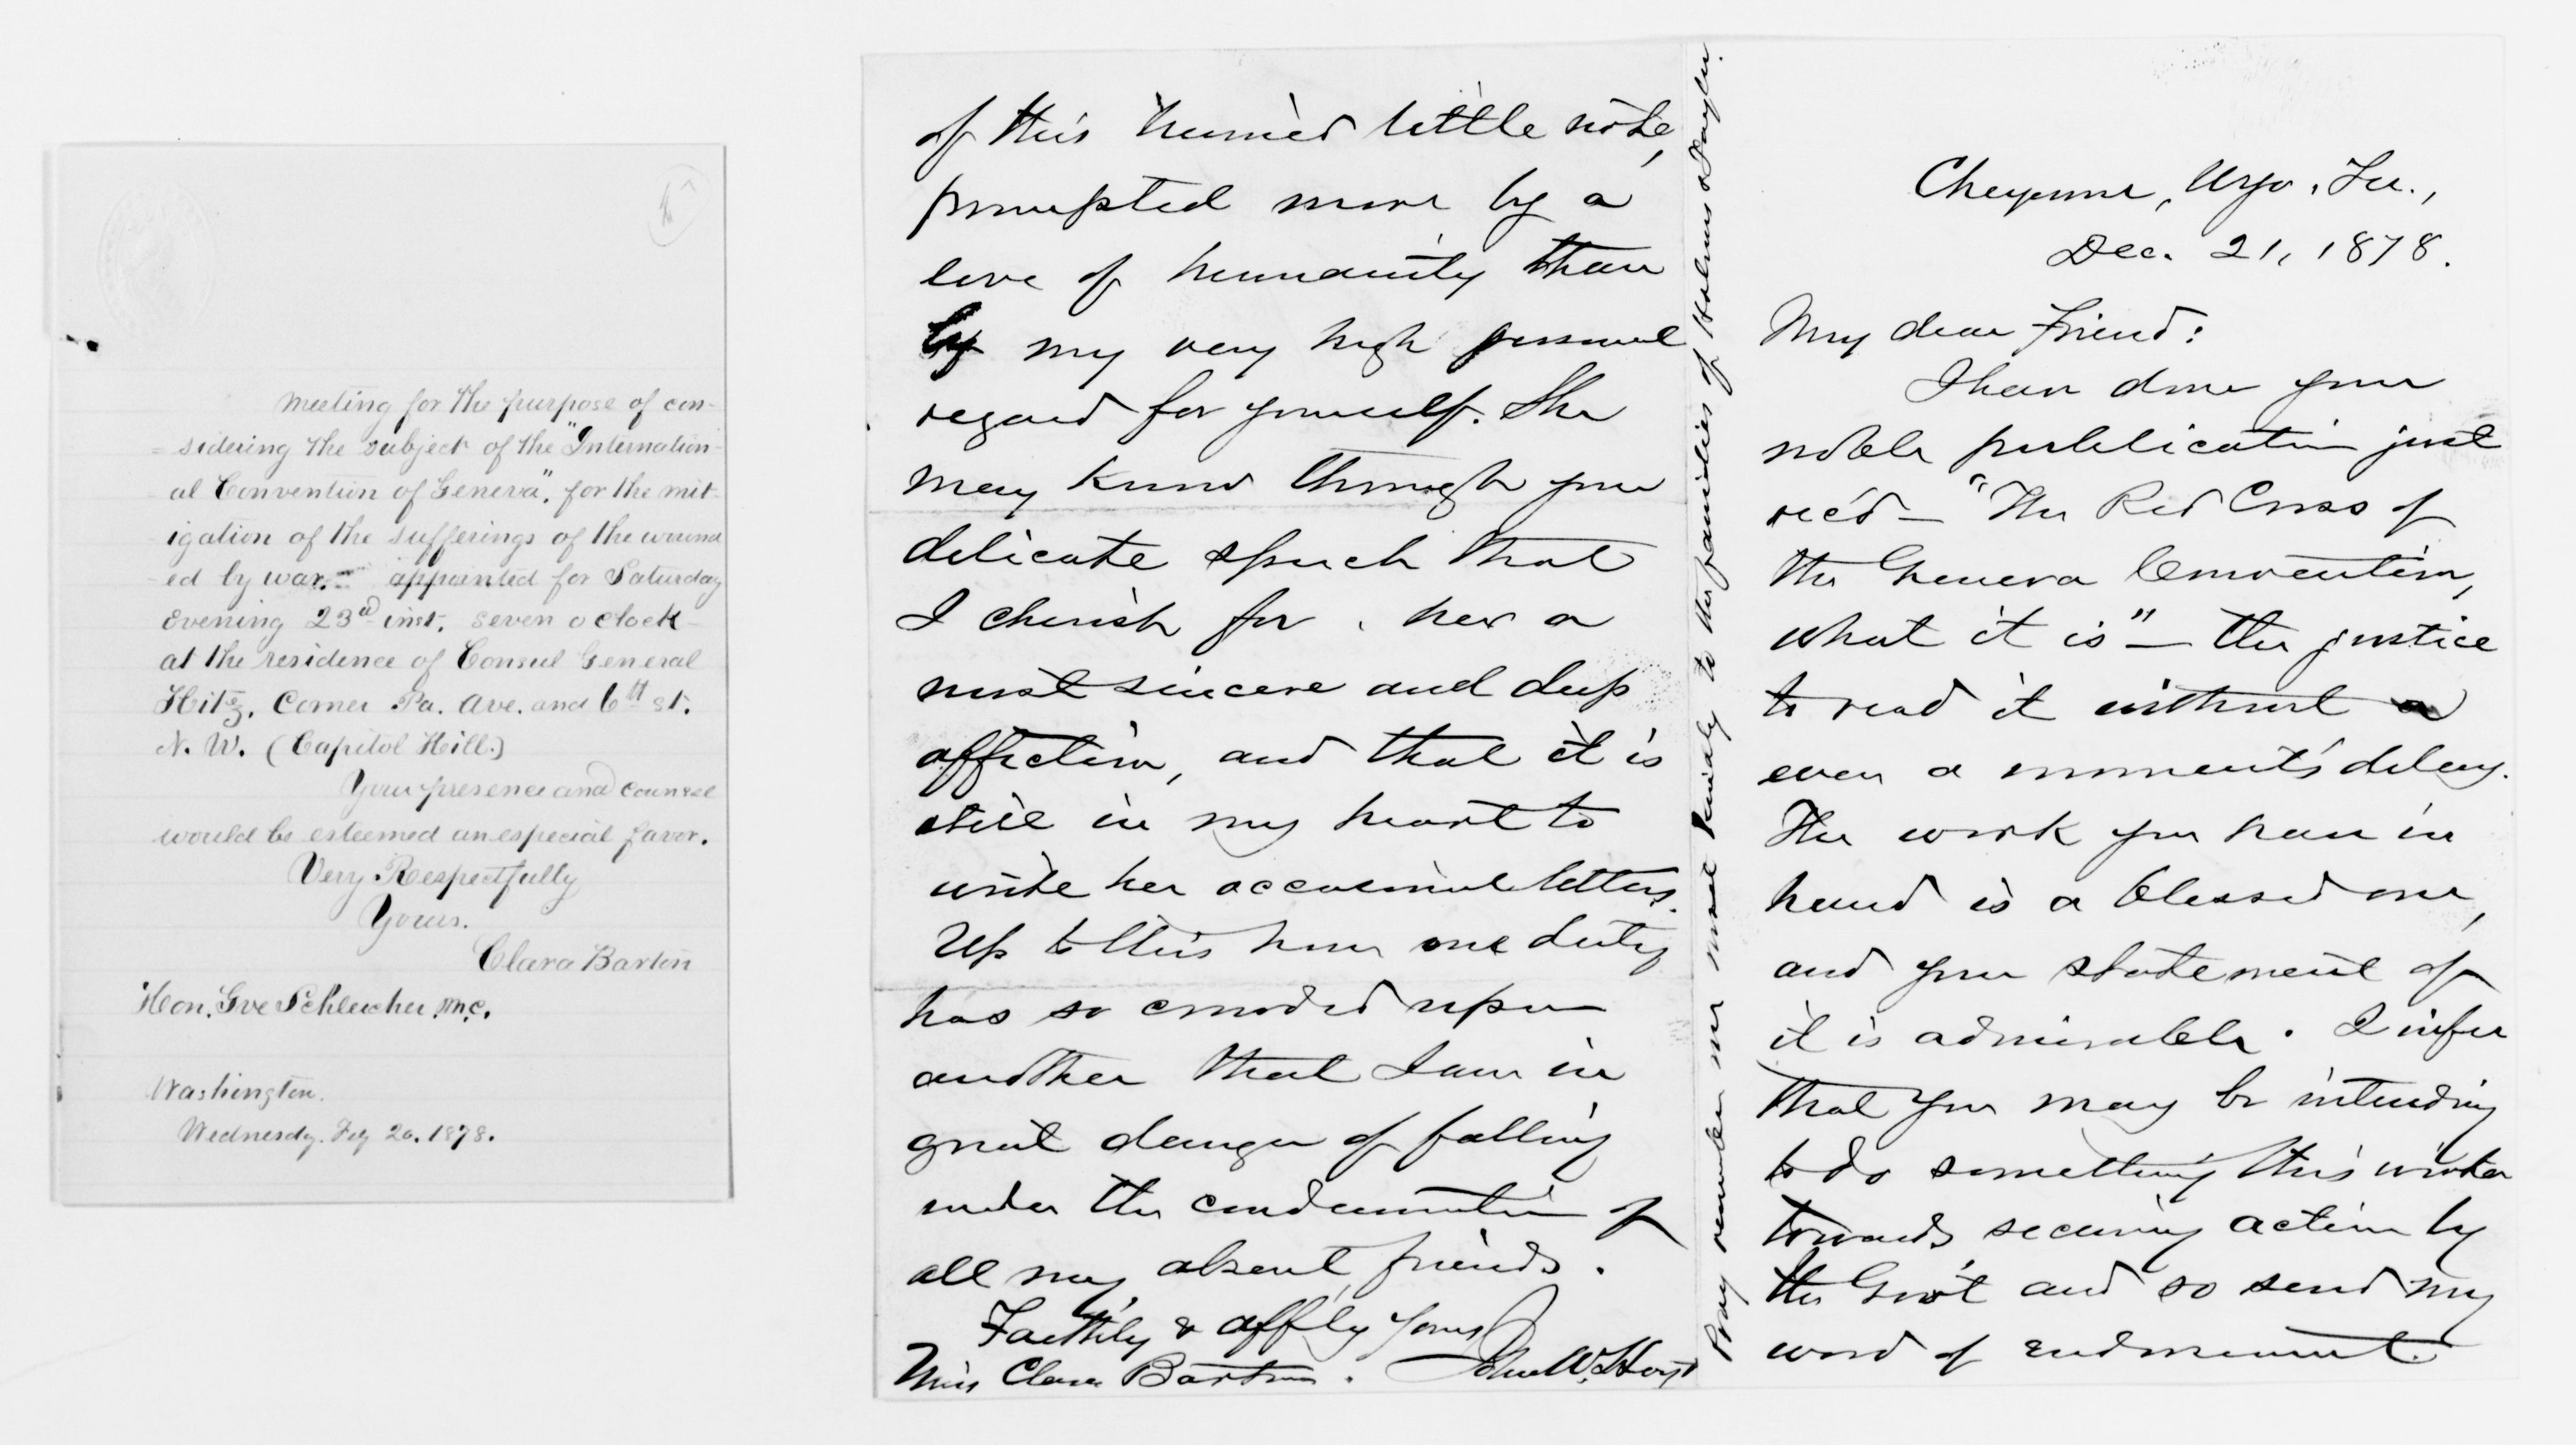 meeting for the purpose of con-
sidering the subject of the "Internation-
al Convention of Geneva", for the mit-
igation of the sufferings of the wound
ed by war. appointed for Saturday
Evening 23d inst. seven o clock
at the residence of Consul General
Hitz. Corner Pa. Ave. and 6th st.
N. W. (Capitol Hill.)
Your presence and counsel
would be esteemed an especial favor.
Very Respectfully
Yours.
Clara Barton
Hon. Gve Schleicher. M.C.
Washington.
Wednesdy. Feb 20. 1878.
of this hurried little note,
prompted more by a
love of humanity than
by my very high personal
regard for yourself. She
may know through your
delicate speech that
I cherish for her a
most sincere and deep
affection, and that it is
still in my heart to
write her occasional letters.
Up to this hour one duty
has so crowded upon
another that I am in
great danger of falling
under the condemnation of
all my absent friends.
Faithf'ly & aff'ly yours
John W. Hoyt
Miss Clara Barton.
Pray remember me most kindly to the families of Holmes & Taylor.
Cheyenne, Wyo. Ter.,
Dec. 21, 1878.
My dear Friend:
I have done your
noble publication just
rec'd — "The Red Cross of
the Geneva Convention,
what it is" — the justice
to read it without
even a moment's delay.
The work you have in
hand is a blessed one,
and your statement of
it is admirable. I infer
that you may be intending
to do something this winter
towards securing action by
the Gov't and so send my
word of endorsement.